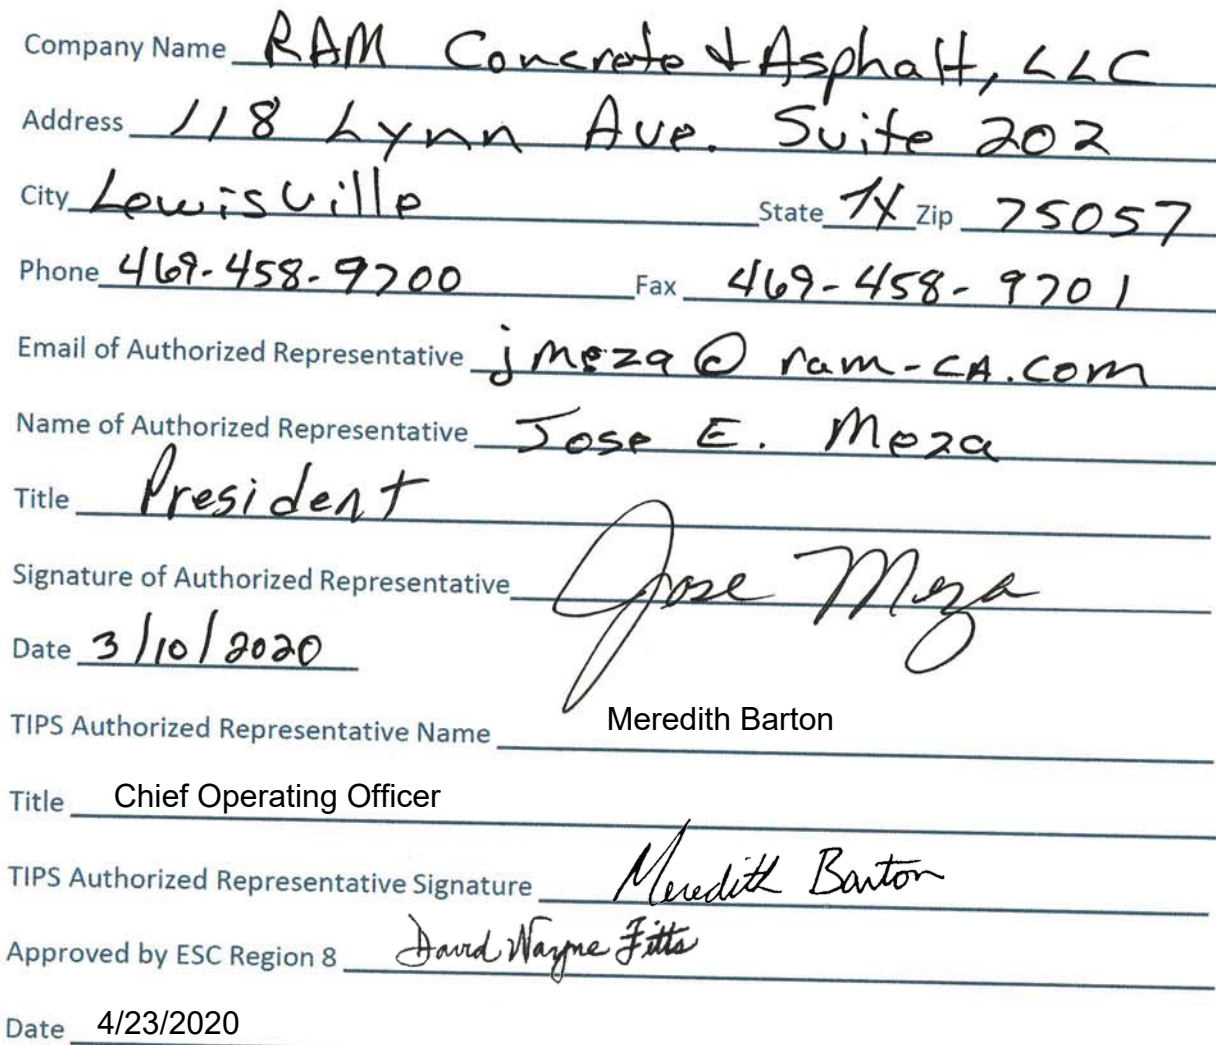 Company Name RAM Concrete & Asphalt, LLC
Address 118 Lynn Ave. Suite 202
City Lewisville State TX Zip 75057
Phone 469-458-9700 Fax 469-458-9701
Email of Authorized Representative jmeza@ram-CA.com
Name of Authorized Representative Jose E. Meza
Title President
Signature of Authorized Representative Jose Meza
Date 3/10/2020
TIPS Authorized Representative Name Meredith Barton
Title Chief Operating Officer
TIPS Authorized Representative Signature Meredith Barton
Approved by ESC Region 8 David Wayne Fitts
Date 4/23/2020